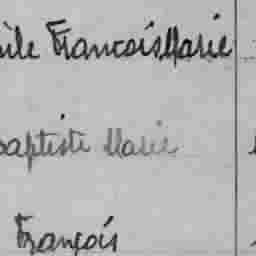 ile François Marie
baptiste Marie
François